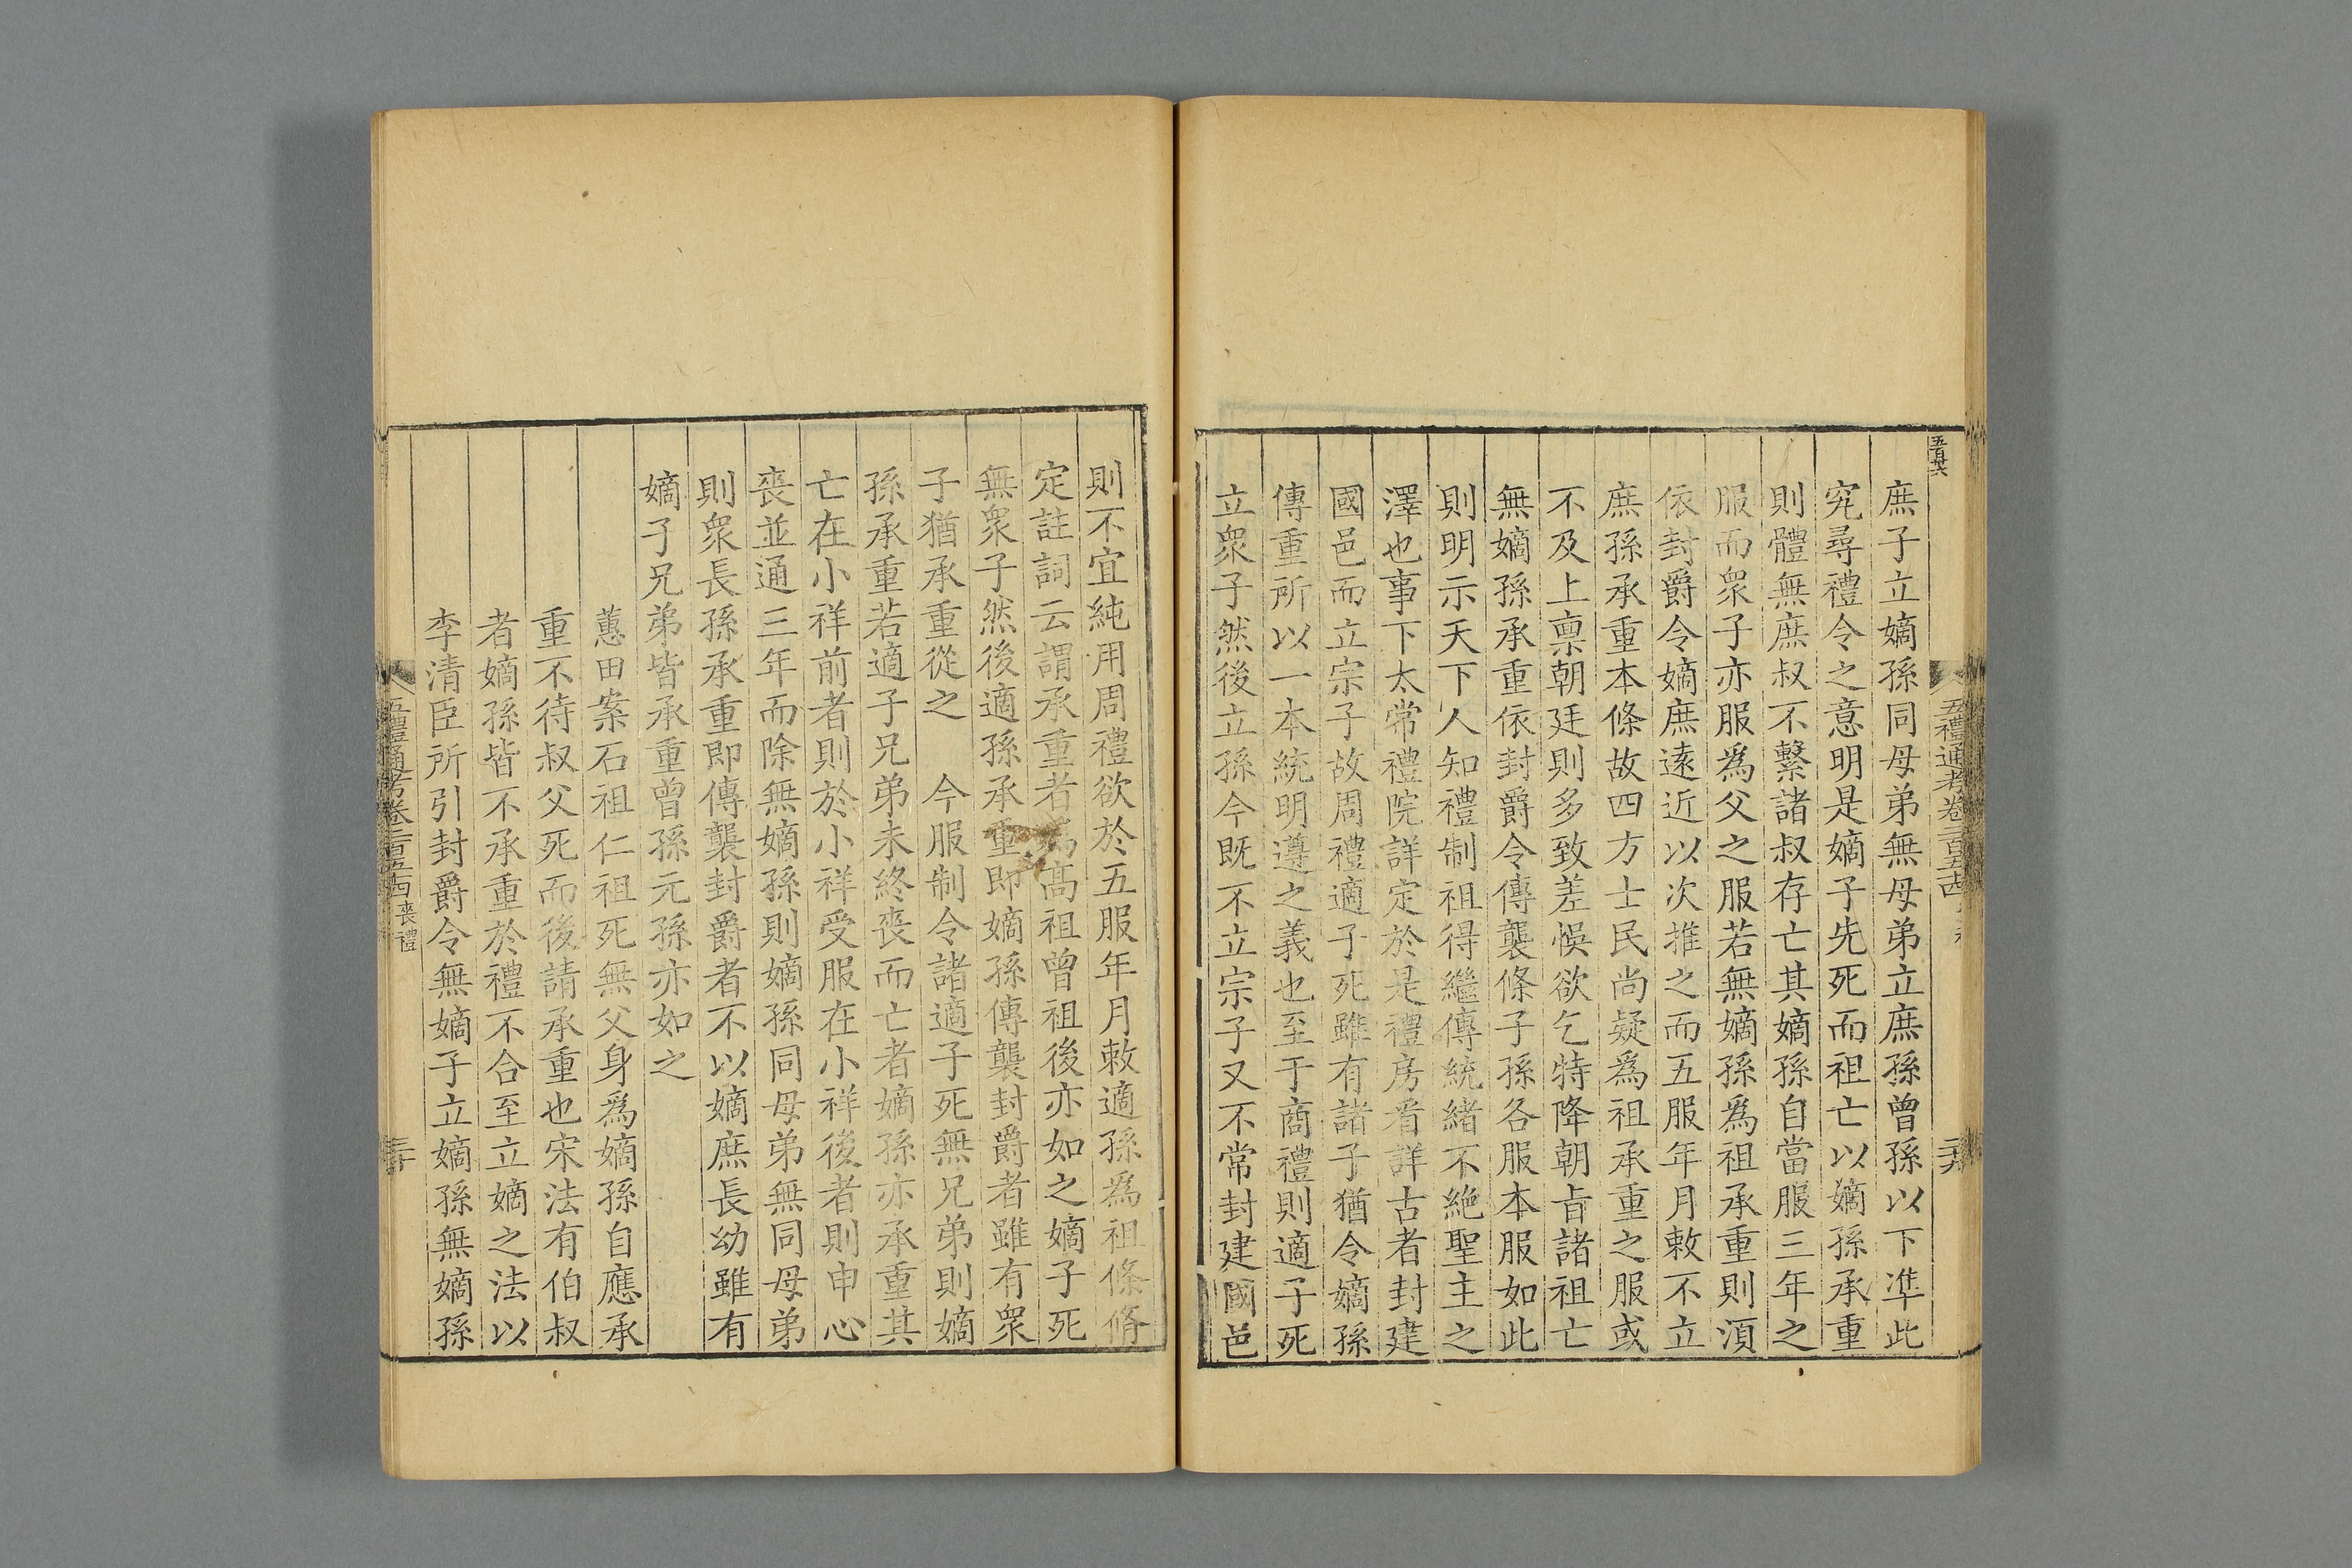 庶子立嫡孫同母弟無母弟立庶孫曾孫以下凖此
究尋禮令之意明是嫡子先死而祖亡以嫡孫承重
則體無庶叔不繫諸叔存亡其嫡孫自當服三年之
服而衆子亦服爲父之服若無嫡孫爲祖承重則湏
依封爵令嫡庶逺近以次推之而五服年月敕不立
庶孫承重本條故四方士民尚疑爲祖承重之服或
不及上禀朝廷則多致差悞欲乞特降朝旨諸祖亡
無嫡孫承重依封爵令傳襲條子孫各服本服如此
則明示天下人知禮制祖得繼傳統緒不絶聖主之
澤也事下太常禮院詳定於是禮房看詳古者封建
國邑而立宗子故周禮適子死雖有諸子猶令嫡孫
傳重所以一本統明遵之義也至于商禮則適子死
立衆子然後立孫今既不立宗子又不常封建國邑
則不宜純用周禮欲於五服年月敕適孫爲祖條脩
定註詞云謂承重者爲髙祖曾祖後亦如之嫡子死
無衆子然後適孫承重即嫡孫傳襲封爵者雖有衆
子猶承重從之　今服制令諸適子死無兄弟則嫡
孫承重若適子兄弟未終喪而亡者嫡孫亦承重其
亡在小祥前者則於小祥受服在小祥後者則申心
喪並通三年而除無嫡孫則嫡孫同母弟無同母弟
則衆長孫承重即傳襲封爵者不以嫡庶長幼雖有
嫡子兄弟皆承重曾孫元孫亦如之
蕙田案石祖仁祖死無父身爲嫡孫自應承
重不待叔父死而後請承重也宋法有伯叔
者嫡孫皆不承重於禮不合至立嫡之法以
李清臣所引封爵令無嫡子立嫡孫無嫡孫
五禮通考卷二百五十四 喪禮
三十